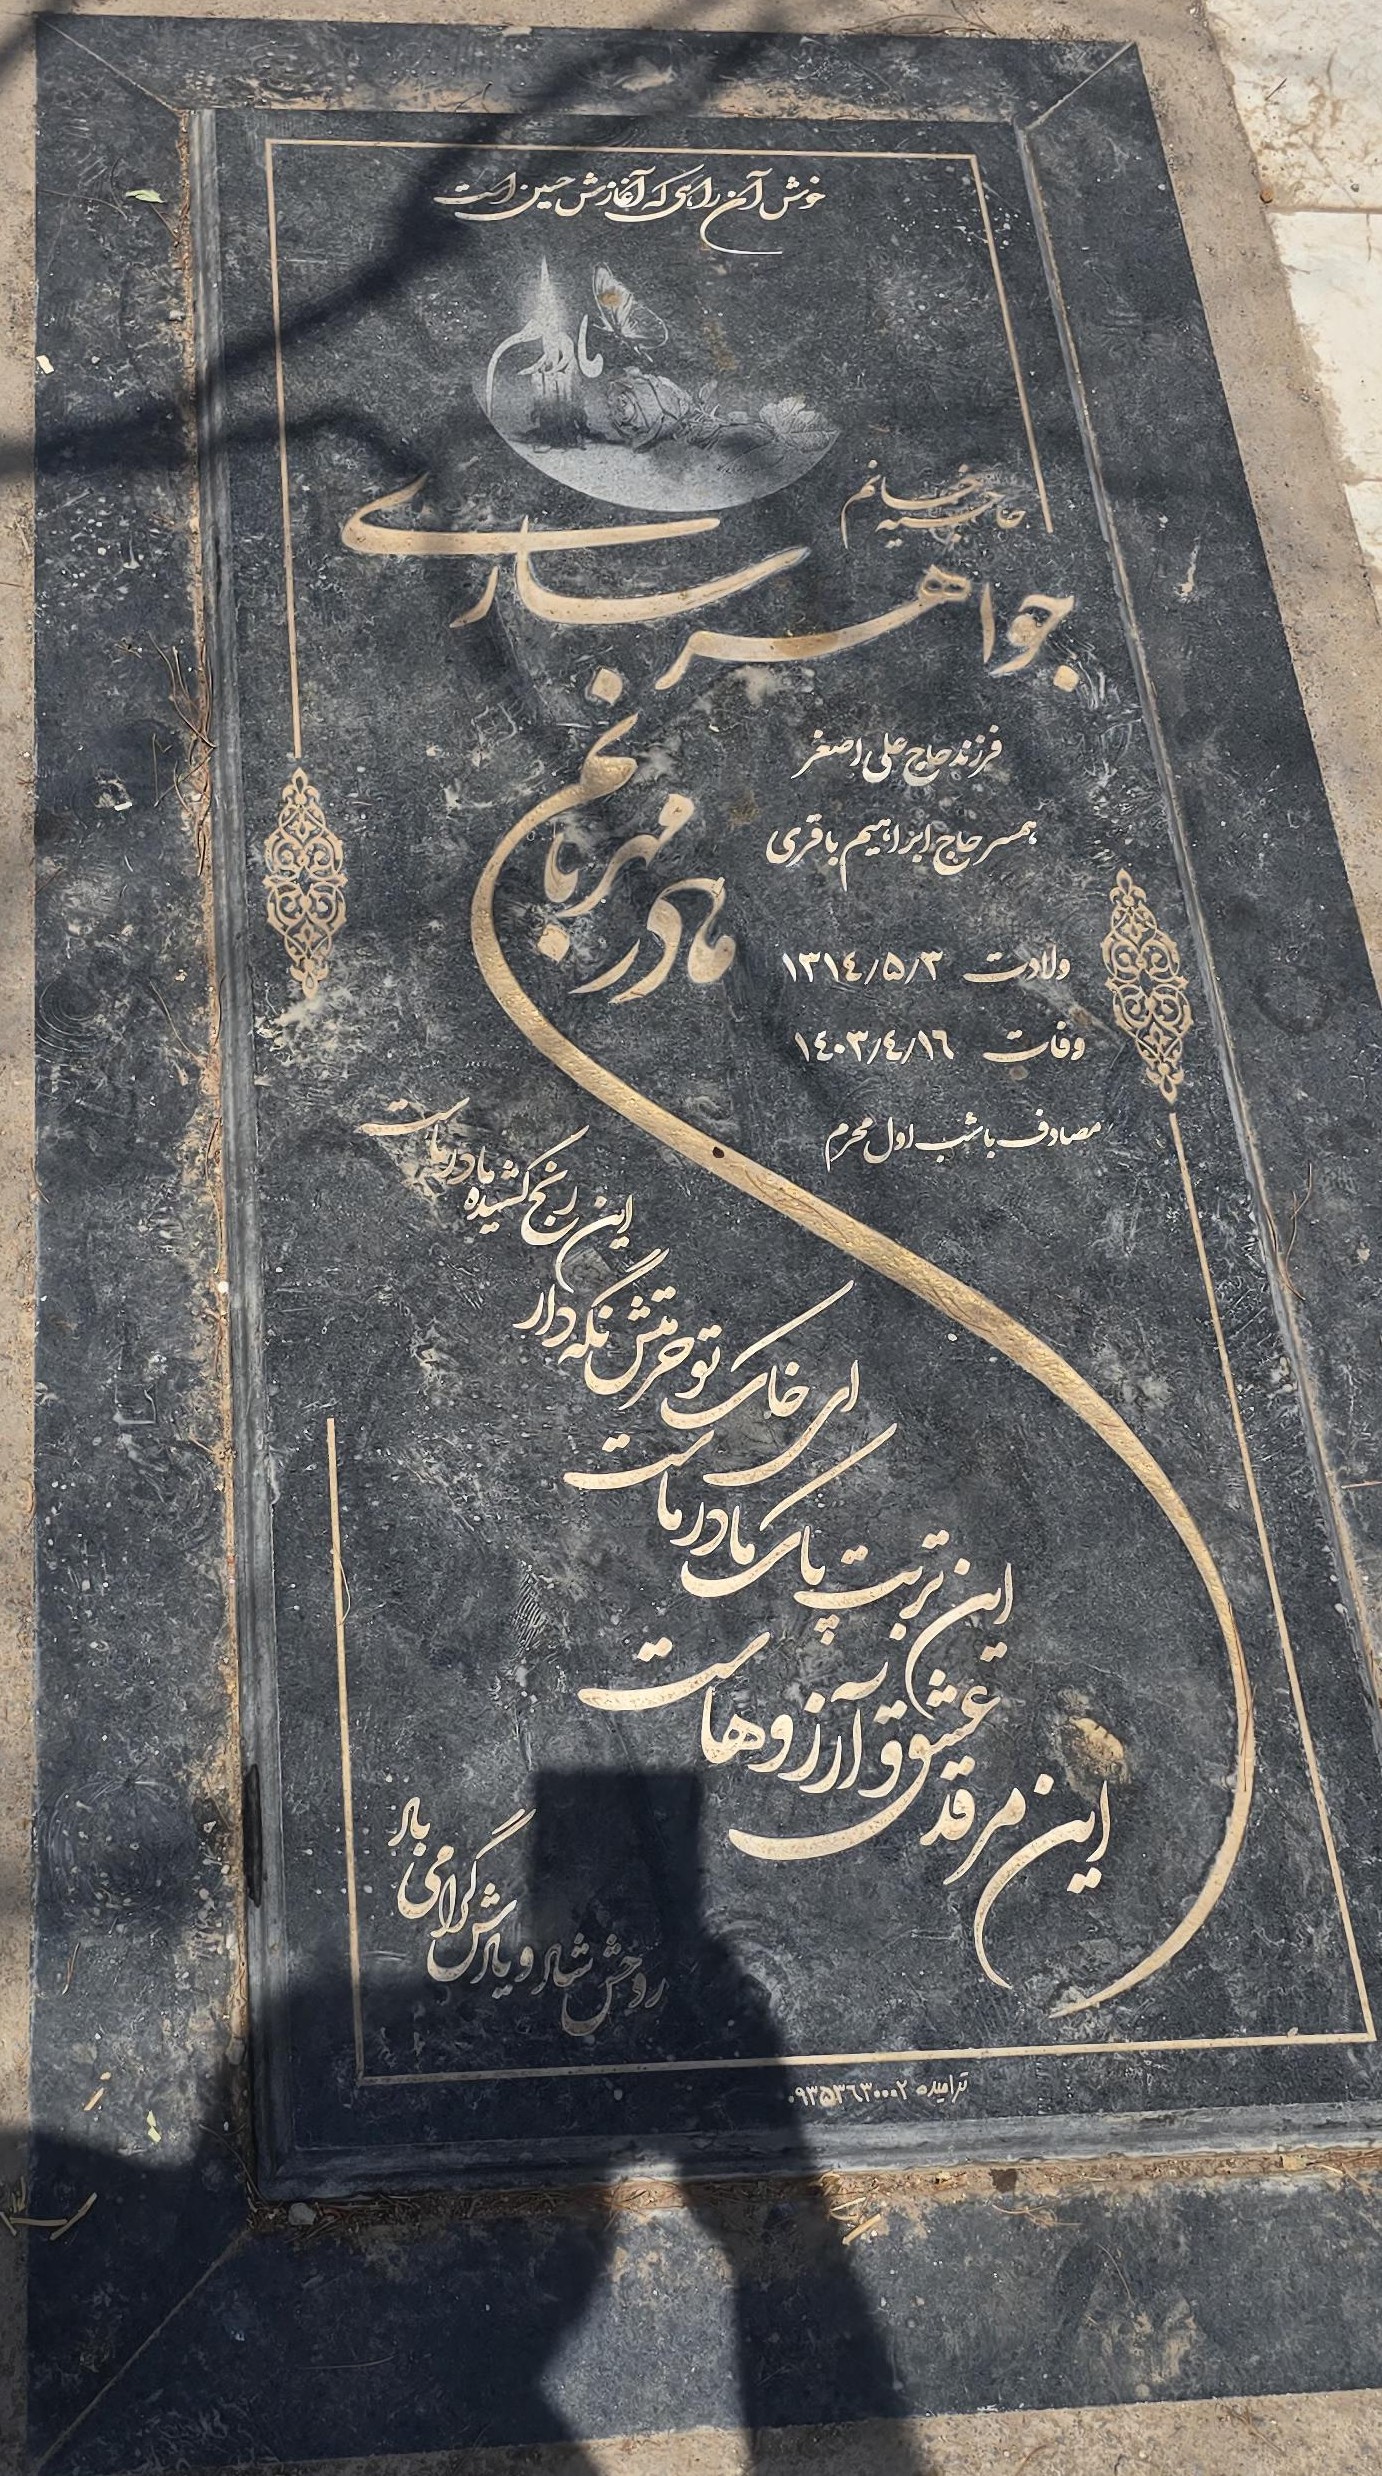 خوش آن راهی که آغازش حسین است
مادرم
حاجیه خانم
جواهر ساری
مادر مهربانم
فرزند حاج علی اصغر
همسر حاج ابراهیم باقری
ولادت ۱۳۱٤/۵/۳
وفات ۱٤۰۳/٤/۱٦
مصادف با شب اول محرم
این رنج کشیده مادر ماست
ای خاک تو حرمتش نگه دار
این تربت پاک مادر ماست
این مرقد عشق و آرزوهاست
روحش شاد و یادش گرامی باد
۰۹۳۵۳٦۳۰۰۰۲